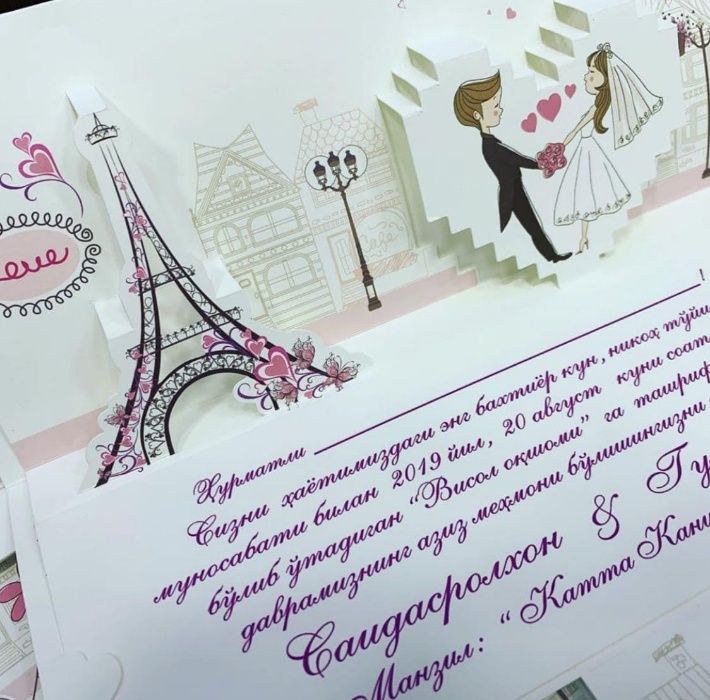 Cafe
Ҳурматли !
Сизни ҳаётимиздаги энг бахтиёр кун, никоҳ тўйи
муносабати билан 2019 йил, 20 август куни соат
бўлиб ўтадиган “Висол оқшоми” га ташриф
даврамизнинг азиз меҳмони бўлишингизни
Саидасролхон & Гу
Манзил: “Катта Кани